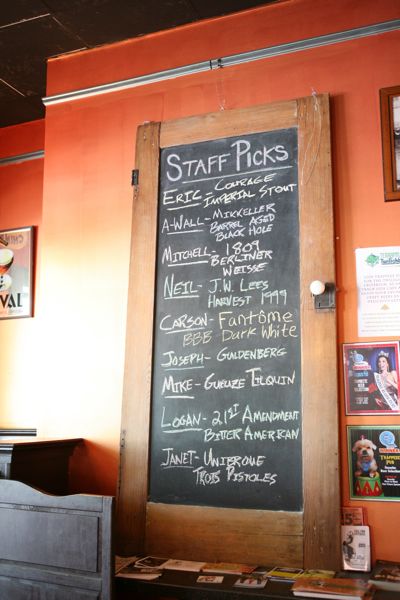 STAFF PICKS
ERIC - COURAGE
IMPERIAL STOUT
A-WALL - MIKKELLER
BARREL AGED
BLACK HOLE
MITCHELL - 1809
BERLINER
WEISSE
NEIL - J.W. LEES
HARVEST 1999
CARSON - FANTÔME
BBB DARK WHITE
JOSEPH - GULDENBERG
MIKE - GUEUZE TILQUIN
LOGAN - 21ST AMENDMENT
BITTER AMERICAN
JANET - UNIBROUE
TROIS PISTOLES